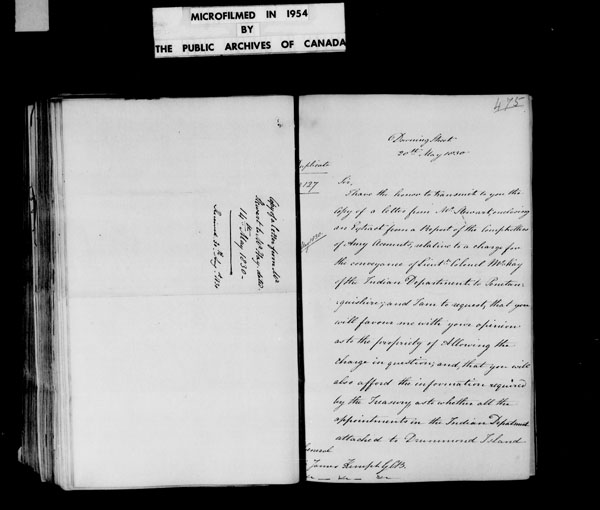 MICROFILMED IN 1954
BY
THE PUBLIC ARCHIVES OF CANADA
Copy of a letter from Mr
Stewart to Mr Hay dated
14th May 1830
475
Downing Street
20th May 1830
Duplicate
127
Sir,
I have the honor to transmit to you the
Copy of a letter from Mr Stewart, enclosing
an Extract from a Report of the Comptrollers
of Army Accounts, relative to a charge for
the conveyance of Lieutt Colonel McKay
of the Indian Department to Penetan-
guishine; and I am to request, that you
will favour me with your opinion
as to the propriety of Allowing the
charge in question; and, that you will
also afford the information required
by the Treasury as to whether all the
appointments in the Indian Department
attached to Drummond Island
General
James Kempt GCB.